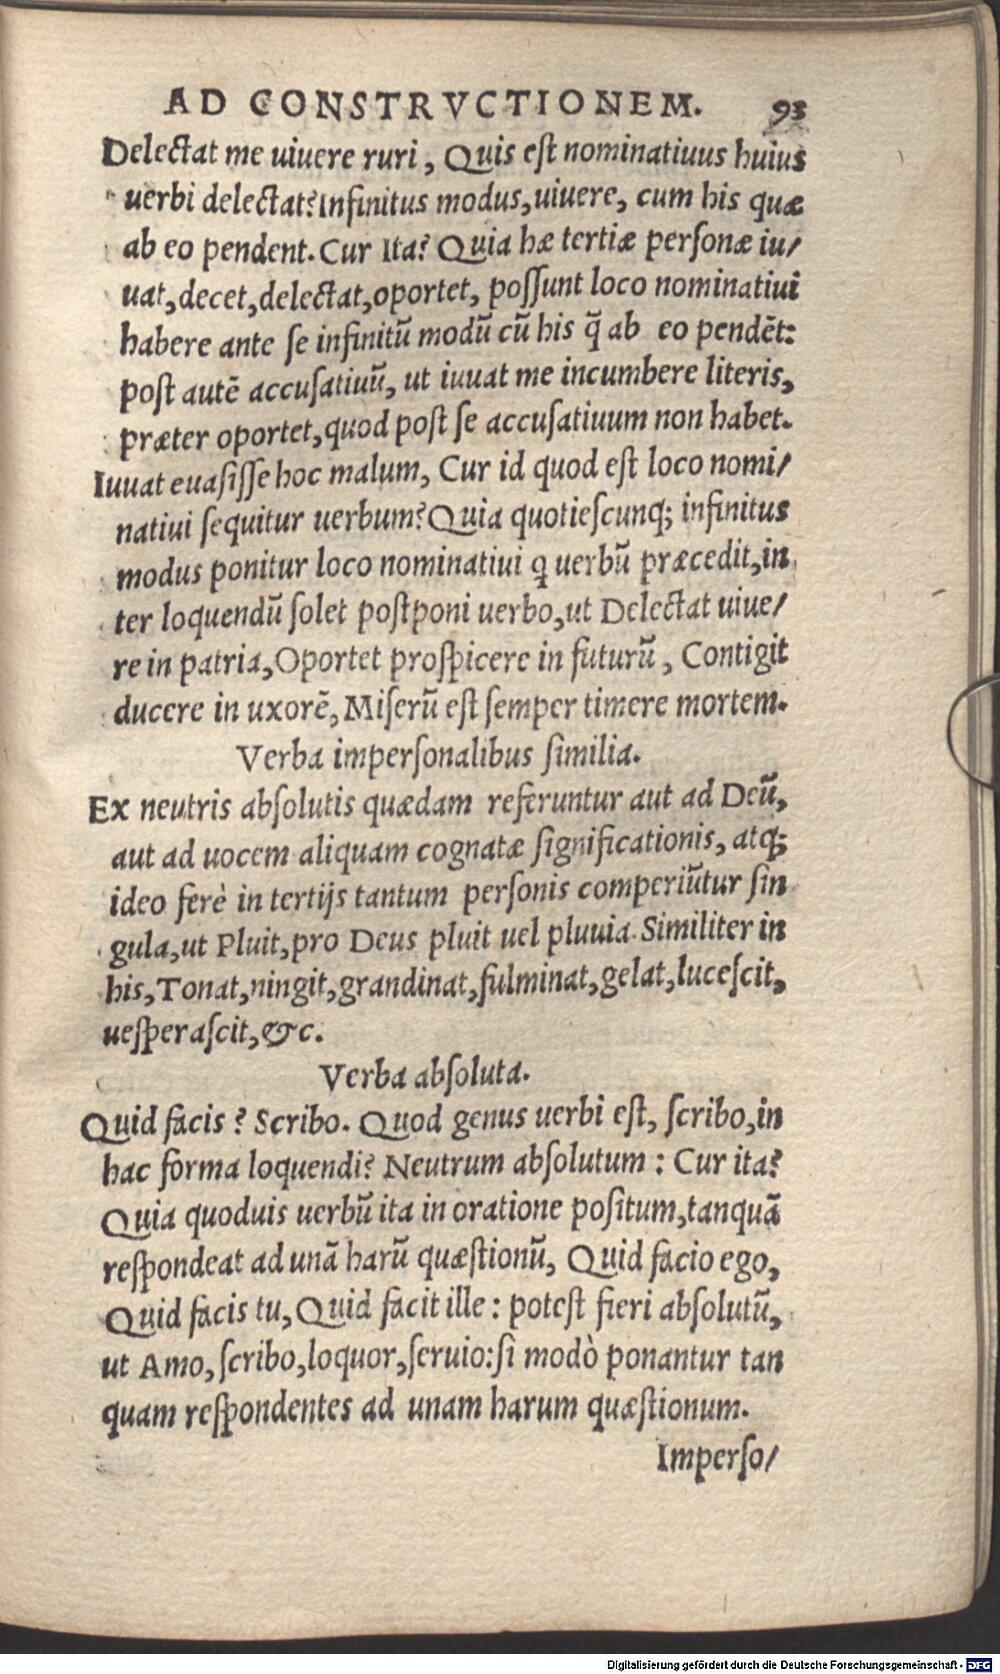 AD CONSTRVCTIONEM. 93
Delectat me uiuere ruri, Quis est nominatiuus huius
uerbi delectat? Infinitus modus, uiuere, cum his quæ
ab eo pendent. Cur Ita? Quia hæ tertiæ personæ iu/
uat, decet, delectat, oportet, possunt loco nominatiui
habere ante se infinitū modū cū his q̃ ab eo pendēt:
post autē accusatiuū, ut iuuat me incumbere literis,
præter oportet, quod post se accusatiuum non habet.
Iuuat euasisse hoc malum, Cur id quod est loco nomi/
natiui sequitur uerbum? Quia quotiescunq; infinitus
modus ponitur loco nominatiui q uerbū præcedit, in
ter loquendū solet postponi uerbo, ut Delectat uiue/
re in patria, Oportet prospicere in futurū, Contigit
ducere in uxorē, Miserū est semper timere mortem.
Verba impersonalibus similia.
Ex neutris absolutis quædam referuntur aut ad Deū,
aut ad uocem aliquam cognatæ significationis, atq;
ideo ferè in tertijs tantum personis comperiūtur sin
gula, ut Pluit, pro Deus pluit uel pluuia. Similiter in
his, Tonat, ningit, grandinat, fulminat, gelat, lucescit,
uesperascit, &c.
Verba absoluta.
Quid facis? Scribo. Quod genus uerbi est, scribo, in
hac forma loquendi? Neutrum absolutum: Cur ita?
Quia quoduis uerbū ita in oratione positum, tanquã
respondeat ad unã harū quæstionū, Quid facio ego,
Quid facis tu, Quid facit ille: potest fieri absolutū,
ut Amo, scribo, loquor, seruio: si modò ponantur tan
quam respondentes ad unam harum quæstionum.
Imperso/
Digitalisierung gefördert durch die Deutsche Forschungsgemeinschaft - DFG